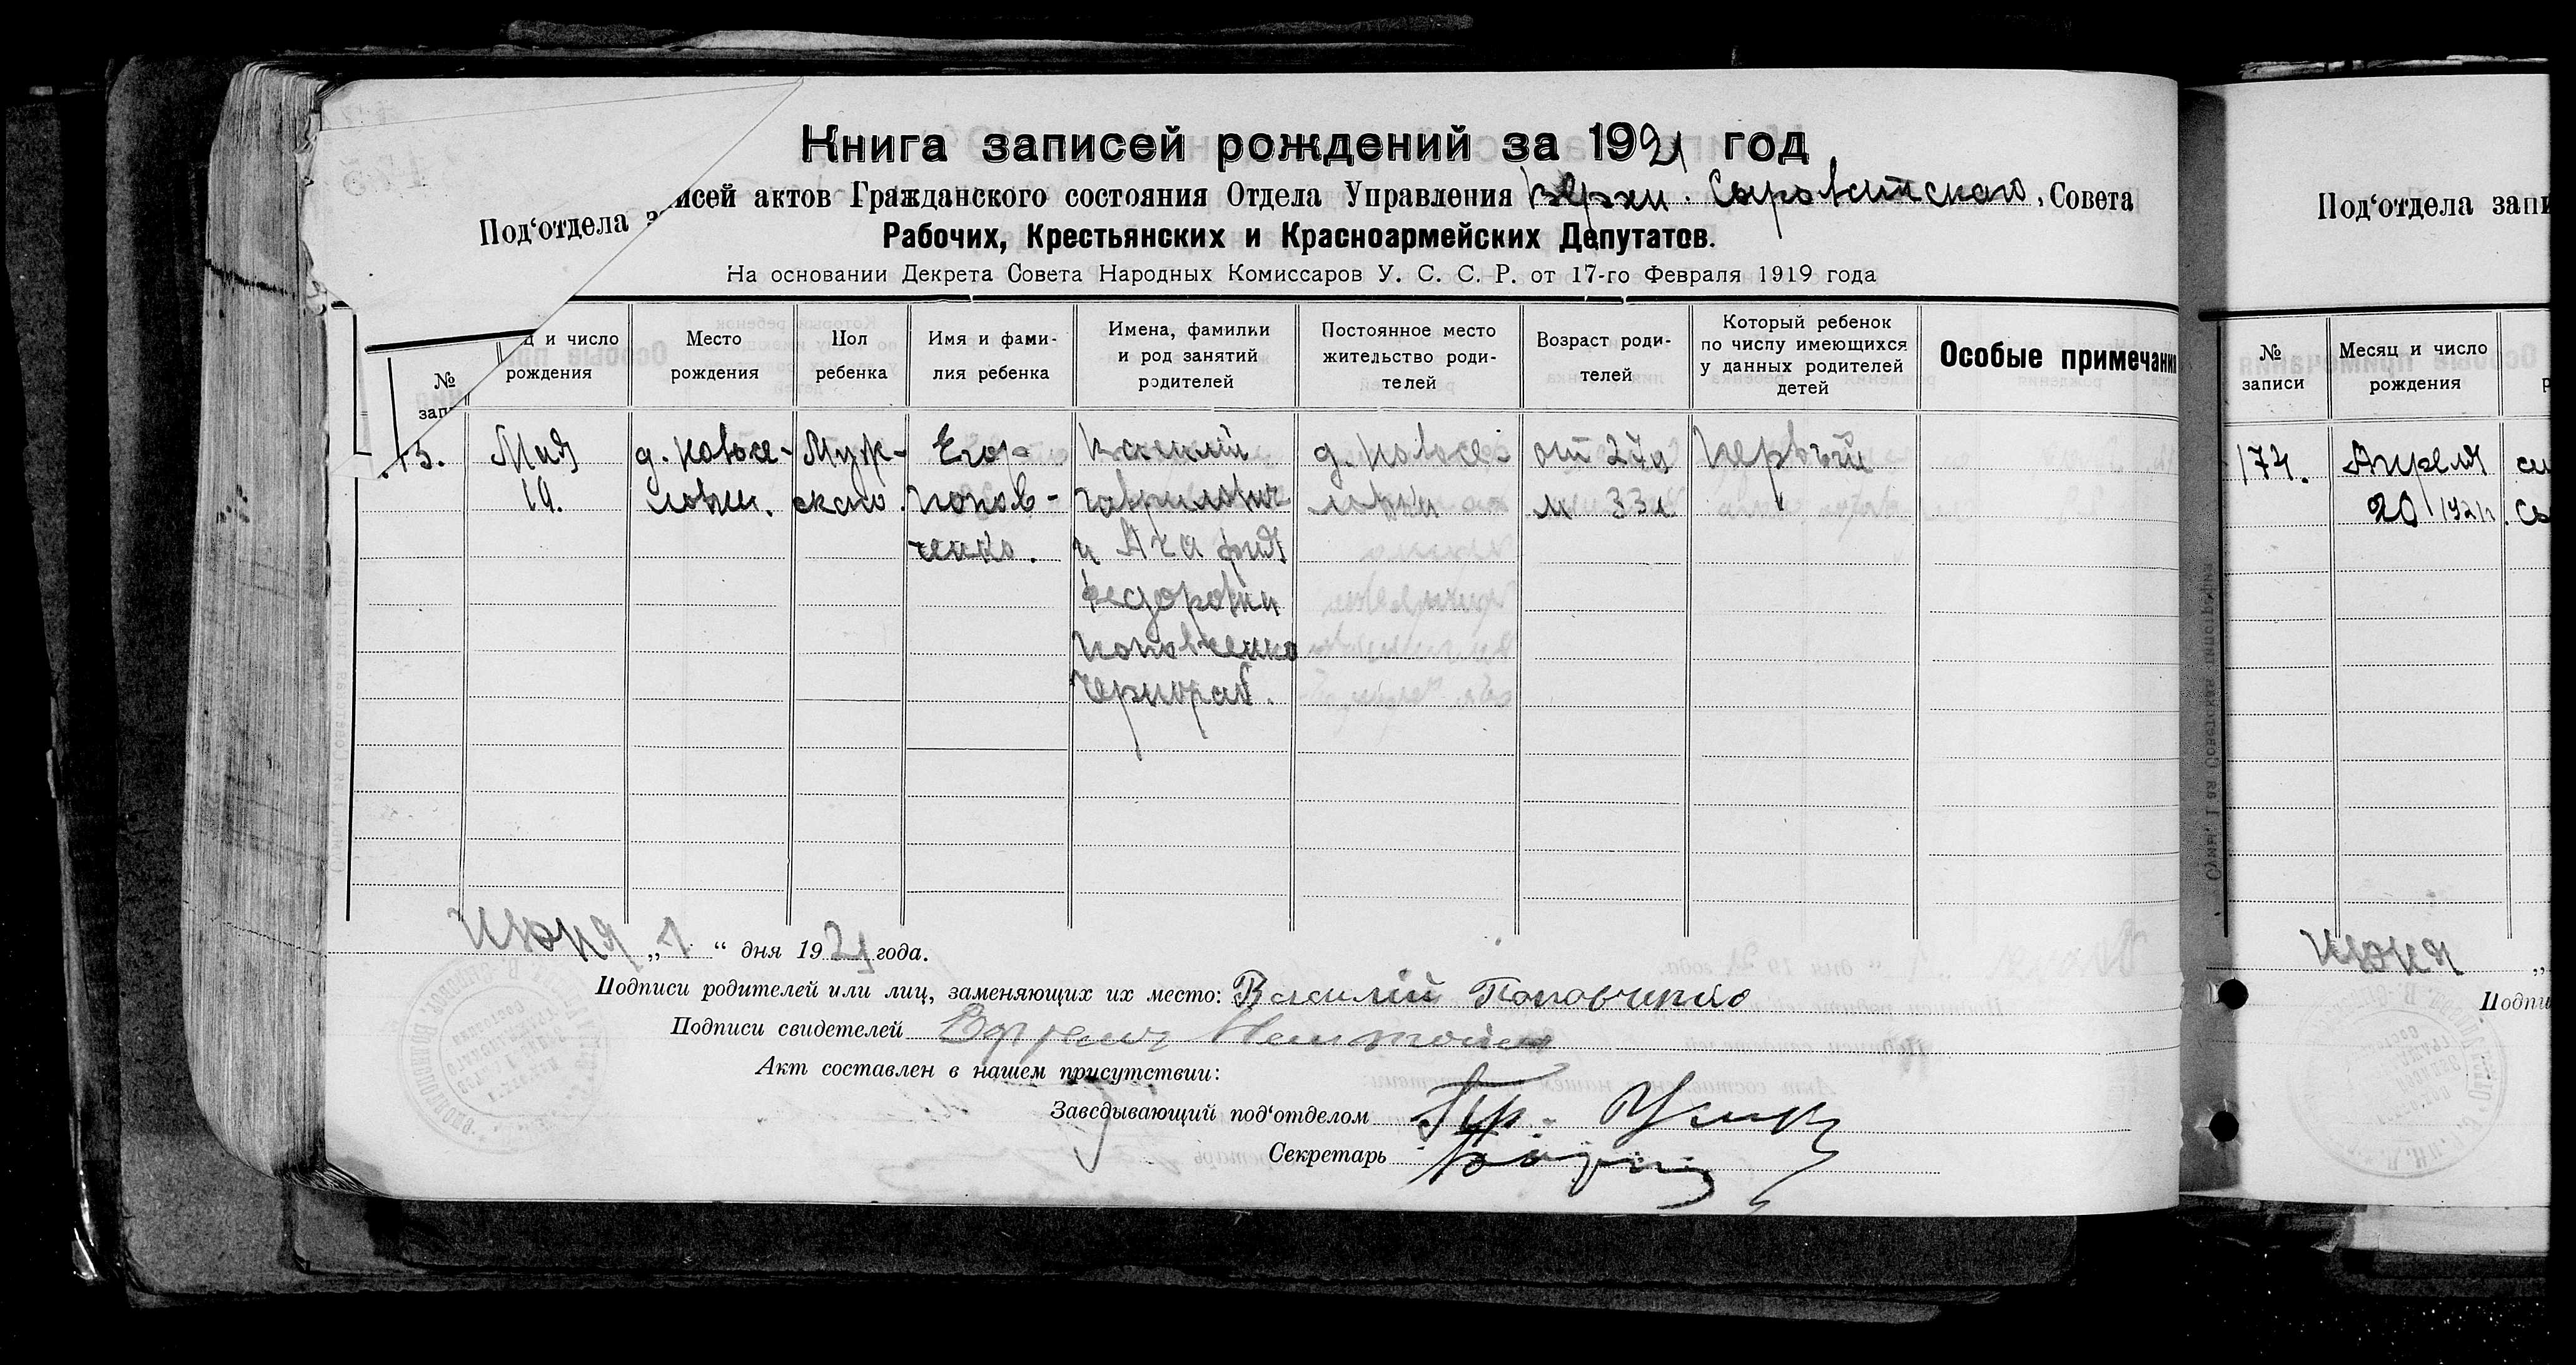 Книга записей рождений за 1921 год
Под‘отдела записей актов Гражданского состояния Отдела Управления Верхн. Сыроватского, Совета
Рабочих, Крестьянских и Красноармейских Депутатов.
На основании Декрета Совета Народных Комиссаров У. С. С. Р. от 17-го Февраля 1919 года
№
зап
д и число
рождения
Место
рождения
Пол
ребенка
Имя и фами-
лия ребенка
Имена, фамилии
и род занятий
родителей
Постоянное место
жительство роди-
телей
Возраст роди-
телей
Который ребенок
по числу имеющихся
у данных родителей
детей
Особые примечани
Мая
19.
д. Новосе-
ловки.
Муж-
ского.
Егор
Попов-
ченко.
Василий
Гаврилович
и Агафия
Федоровна
Поповченко
Чернораб.
д. Новосе-
ловки
от 27л
м 33л
Первый
Июня „1“ дня 1921 года.
Подписи родителей или лиц, заменяющих их место: Василий Поповченко
Подписи свидетелей
Акт составлен в нашем присутствии:
Заведывающий под‘отделом
Секретарь
Под‘отдела запи
№
записи
Месяц и число
рождения
174.
Апреля
20 1921г.
Июня „
Подпи